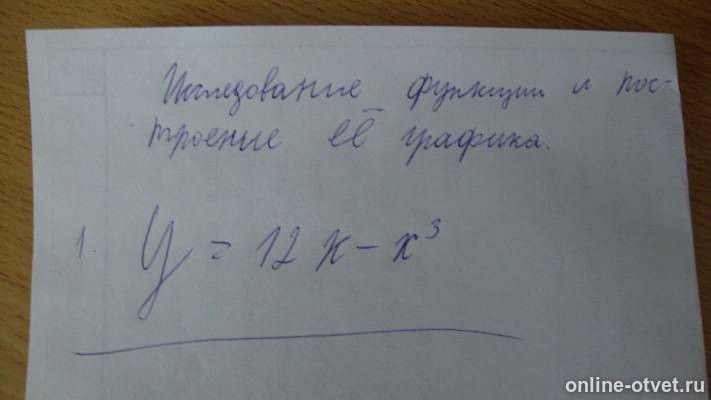 Исследование функции и пос-
троение её графика.
1. y = 12x - x³
online-otvet.ru